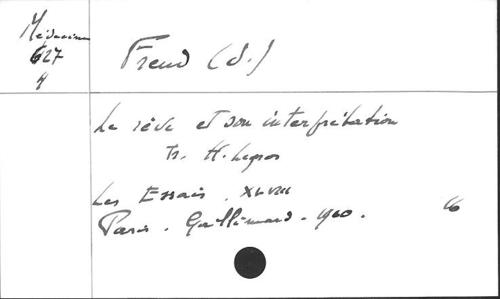 Médecine
627
4
Freud (S.)
Le rêve et son interprétation
Tr. H. Legros
Les Essais. XLVIII
Paris. Gallimard. 1960.
16